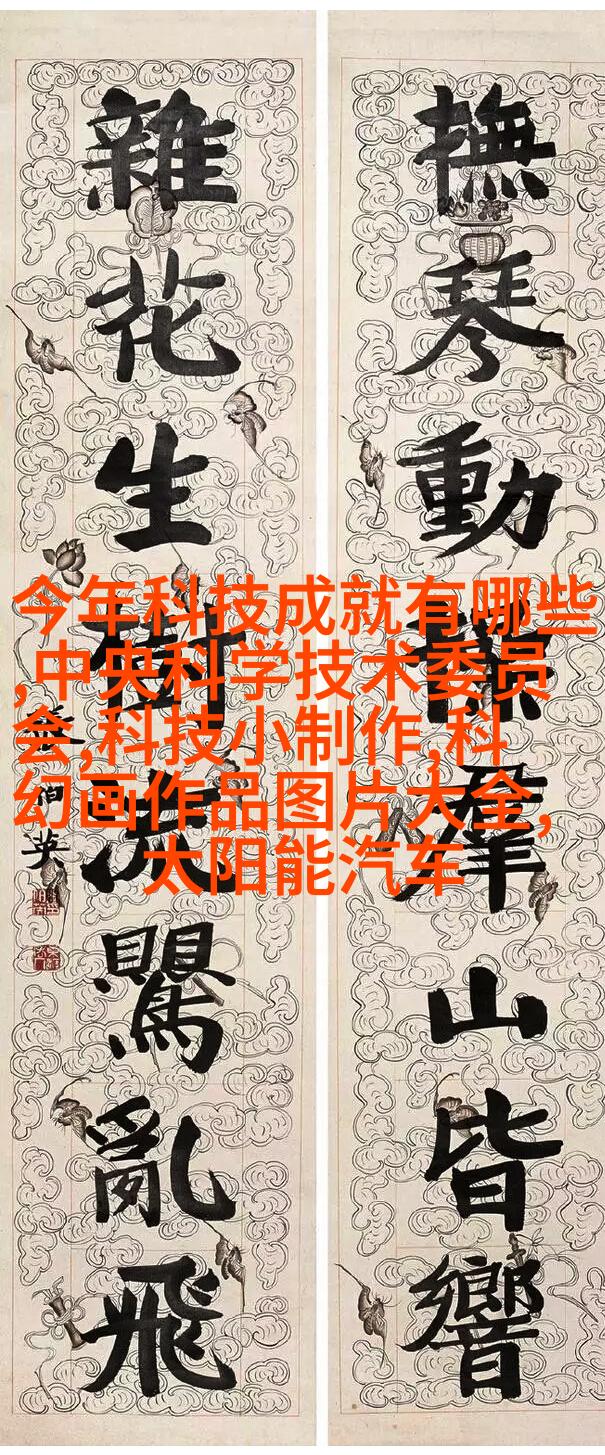 撫琴動操羣山皆響
雜花生樹流鶯亂飛
柏英
今年科技成就有哪些
,中央科学技术委员
会,科技小制作,科
幻画作品图片大全,
太阳能汽车